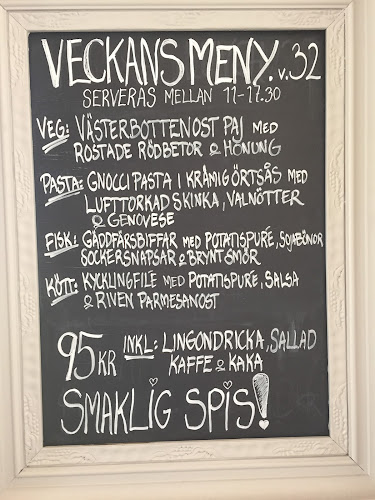 VECKANS MENY. v.32
SERVERAS MELLAN 11-17.30
VEG: VÄSTERBOTTENOST PAJ MED
ROSTADE RÖDBETOR & HONUNG
PASTA: GNOCCI PASTA I KRÄMIG ÖRTSÅS MED
LUFTTORKAD SKINKA, VALNÖTTER
& GENOVESE
FISK: GÄDDFÄRSBIFFAR MED POTATISPURE, SOJABÖNOR
SOCKERSNAPSAR & BRYNT SMÖR
KÖTT: KYCKLINGFILE MED POTATISPURE, SALSA
& RIVEN PARMESANOST
95 KR INKL: LINGONDRICKA, SALLAD
KAFFE & KAKA
SMAKLIG SPIS!